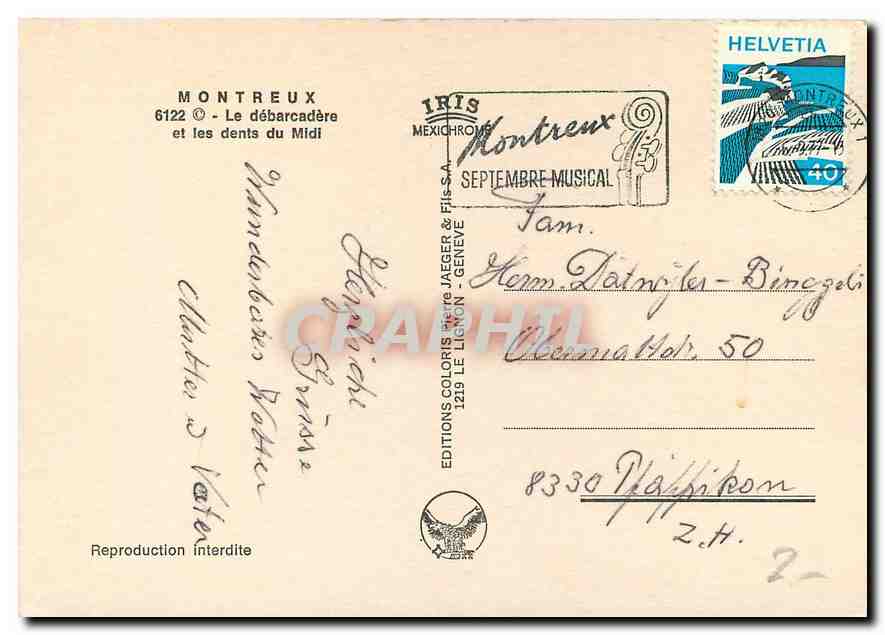 MONTREUX
6122 © - Le débarcadère
et les dents du Midi
IRIS
MEXICHROME
Montreux
SEPTEMBRE MUSICAL
HELVETIA
40
MONTREUX 1
Herzliche
Grüsse
Wunderbares Wetter
Mutter u Vater
EDITIONS COLORIS Pierre JAEGER & Fils S.A.
1219 LE LIGNON - GENEVE
Fam.
Herm. Dätwyler-Binggeli
Obermattstr. 50
8330 Pfäffikon
Z.H.
Reproduction interdite
2.-
CRAPHIL